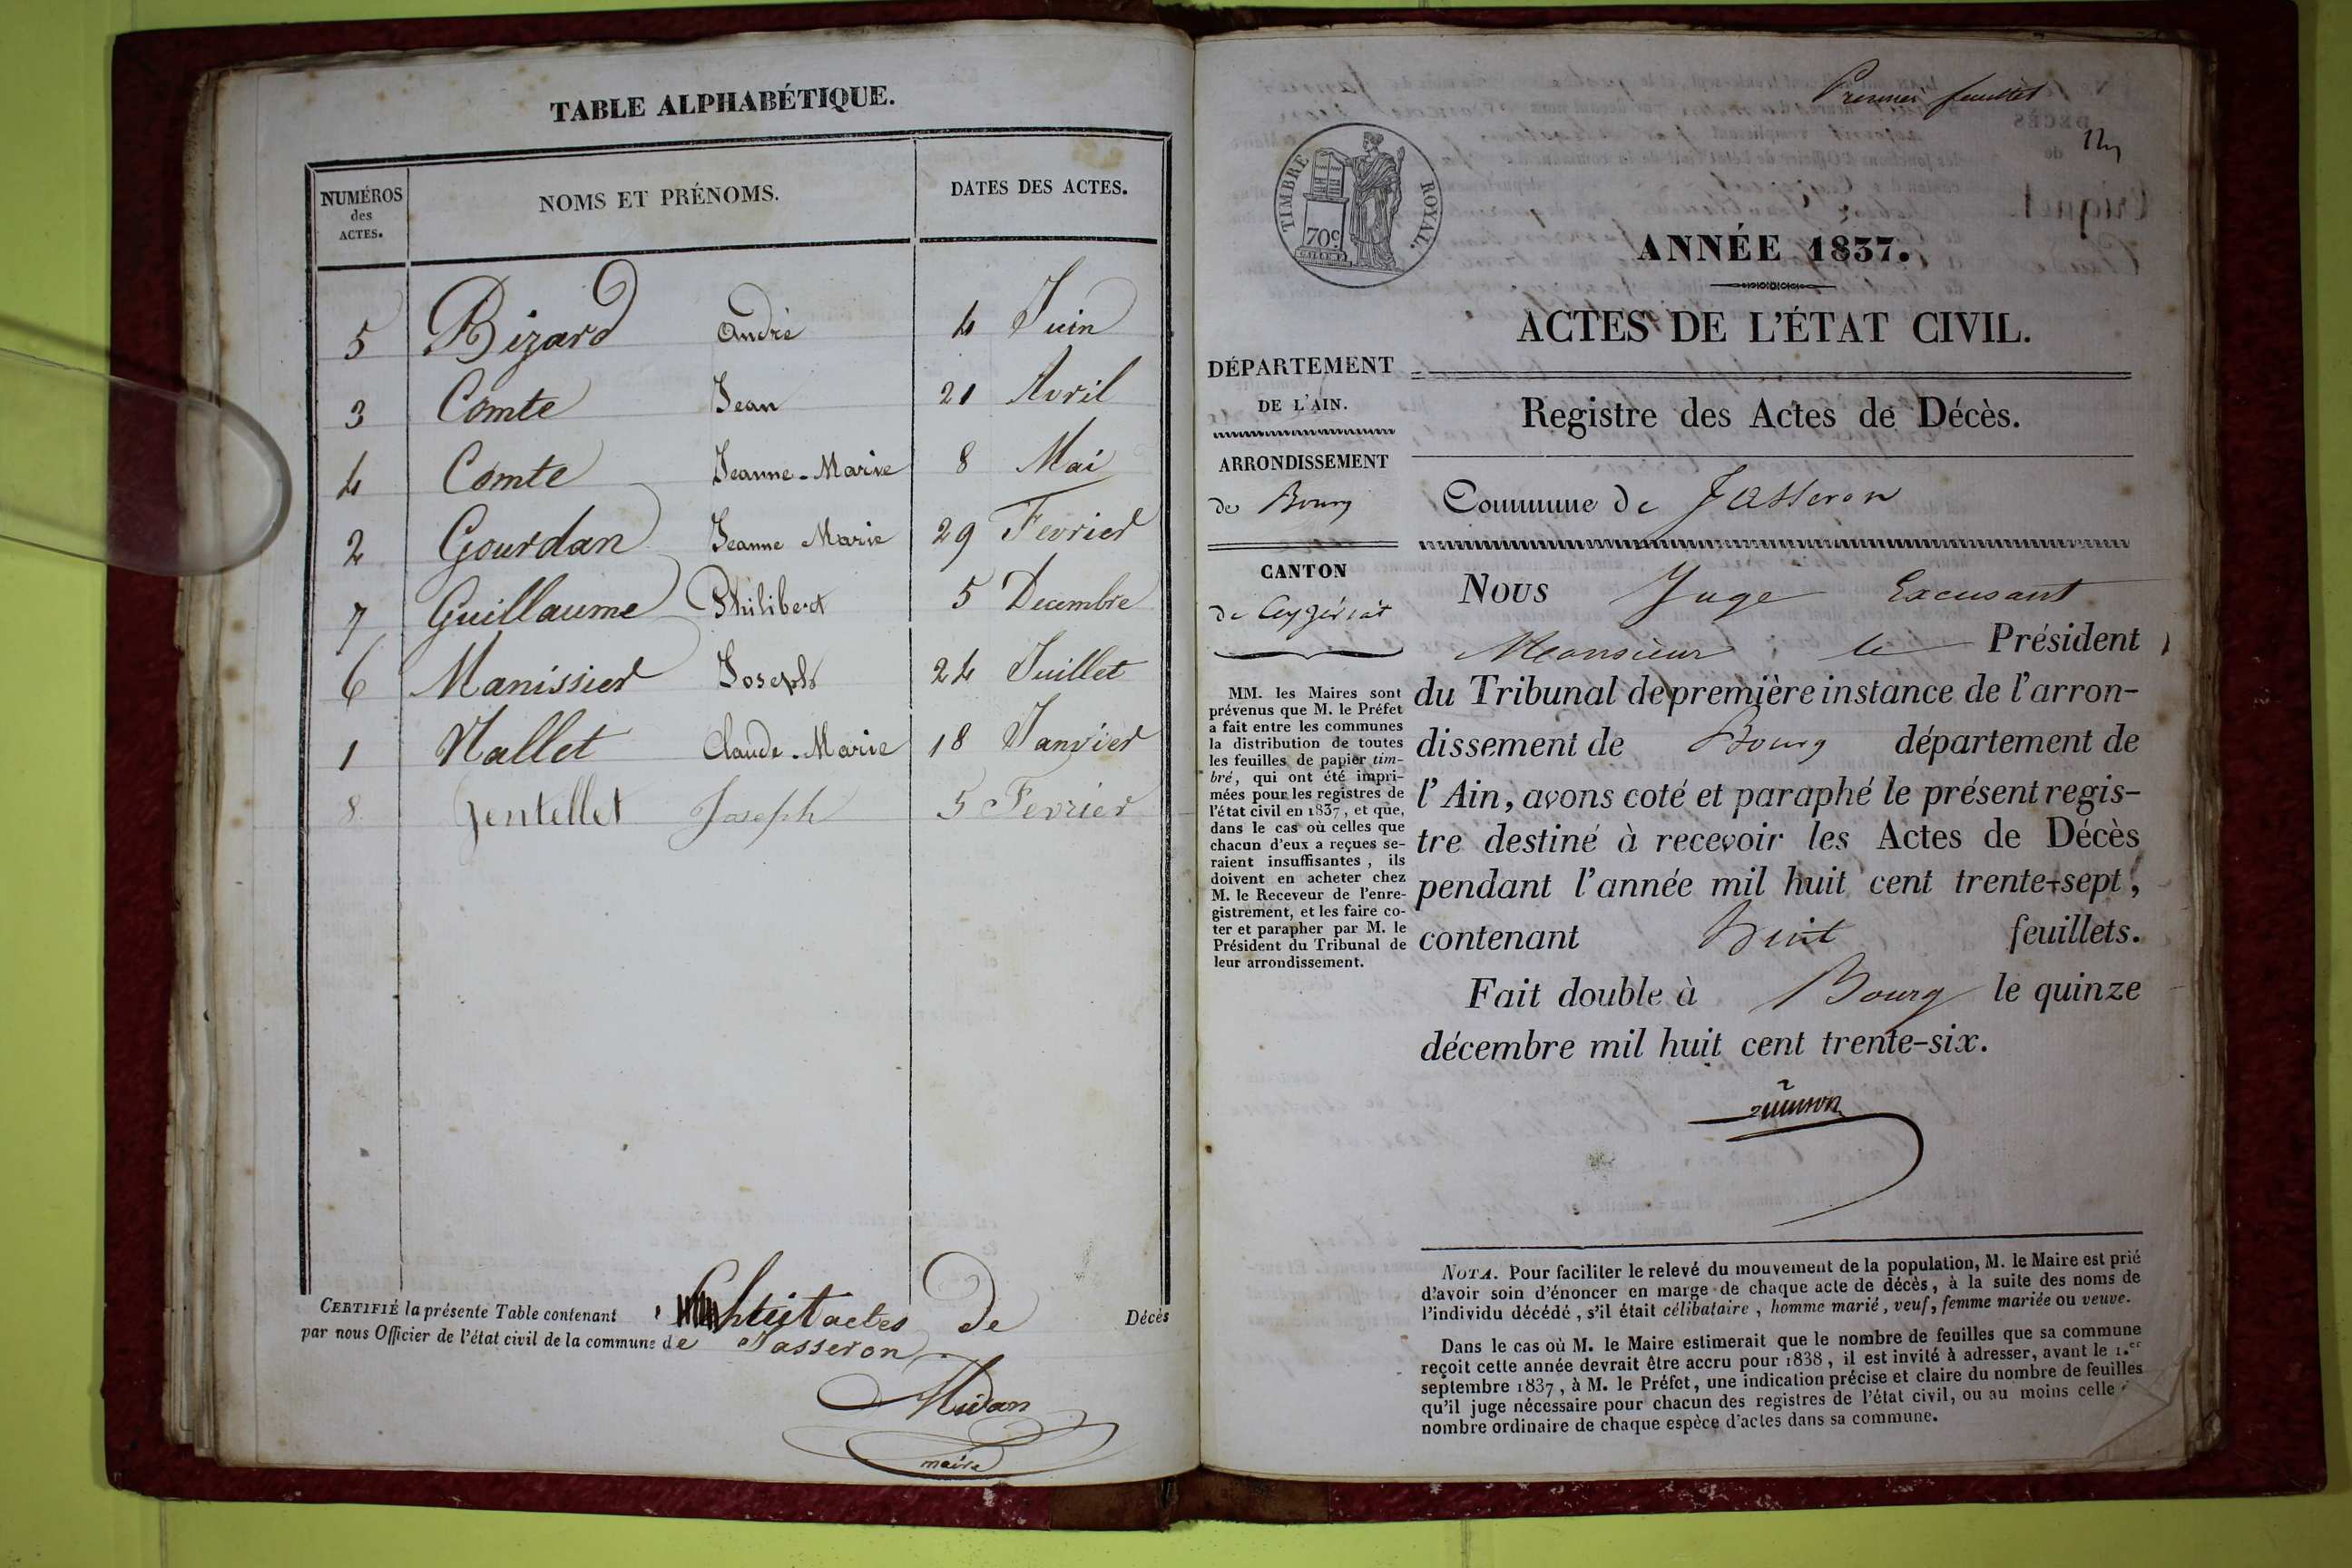 TABLE ALPHABÉTIQUE.
NUMÉROS des ACTES. NOMS ET PRÉNOMS. DATES DES ACTES.
5 Bizard André 4 Juin
3 Comte Jean 21 Avril
4 Comte Jeanne-Marie 8 Mai
2 Gourdan Jeanne Marie 29 Fevrier
7 Guillaume Philibert 5 Decembre
6 Manissier Joseph 24 Juillet
1 Nallet Claude-Marie 18 Janvier
8. Gentellet Joseph 5 Fevrier
CERTIFIÉ la présente Table contenant huit actes de Décès
par nous Officier de l'état civil de la commune de Jasseron
Midan
maire
Premier feuillet
TIMBRE ROYAL.
70c
ANNÉE 1837.
ACTES DE L'ÉTAT CIVIL.
DÉPARTEMENT
DE L'AIN.
Registre des Actes de Décès.
ARRONDISSEMENT
de Bourg
Commune de Jasseron
CANTON
de Ceyzériat
MM. les Maires sont
prévenus que M. le Préfet
a fait entre les communes
la distribution de toutes
les feuilles de papier tim-
bré, qui ont été impri-
mées pour les registres de
l'état civil en 1837, et que,
dans le cas où celles que
chacun d'eux a reçues se-
raient insuffisantes, ils
doivent en acheter chez
M. le Receveur de l'enre-
gistrement, et les faire co-
ter et parapher par M. le
Président du Tribunal de
leur arrondissement.
Nous Juge Excusant
Monsieur le Président
du Tribunal de première instance de l'arron-
dissement de Bourg département de
l'Ain, avons coté et paraphé le présent regis-
tre destiné à recevoir les Actes de Décès
pendant l'année mil huit cent trente-sept,
contenant huit feuillets.
Fait double à Bourg le quinze
décembre mil huit cent trente-six.
NOTA. Pour faciliter le relevé du mouvement de la population, M. le Maire est prié
d'avoir soin d'énoncer en marge de chaque acte de décès, à la suite des noms de
l'individu décédé, s'il était célibataire, homme marié, veuf, femme mariée ou veuve.
Dans le cas où M. le Maire estimerait que le nombre de feuilles que sa commune
reçoit cette année devrait être accru pour 1838, il est invité à adresser, avant le 1.er
septembre 1837, à M. le Préfet, une indication précise et claire du nombre de feuilles
qu'il juge nécessaire pour chacun des registres de l'état civil, ou au moins celle
nombre ordinaire de chaque espèce d'actes dans sa commune.